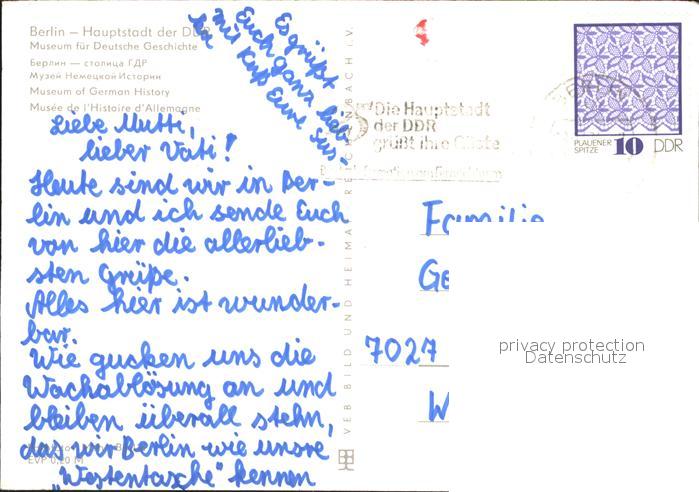 Berlin – Hauptstadt der DDR
Museum für Deutsche Geschichte
Берлин — столица ГДР
Музей Немецкой Истории
Museum of German History
Musée de l'Histoire d'Allemagne
Es grüßt
Euch ganz lieb
mit Kuß Eure Sus.
Liebe Mutti,
lieber Vati!
Heute sind wir in Ber-
lin und ich sende Euch
von hier die allerlieb-
sten Grüße.
Alles hier ist wunder-
bar.
Wie gucken uns die
Wachablösung an und
bleiben überall stehn,
das wir Berlin wie unsre
„Westentasche" kennen
EVP 0,20 M
VEB BILD UND HEIMAT REICHENBACH i. V.
Die Hauptstadt
der DDR
grüßt ihre Gäste
PLAUENER
SPITZE 10 DDR
Familie
Ge
7027
W
privacy protection
Datenschutz